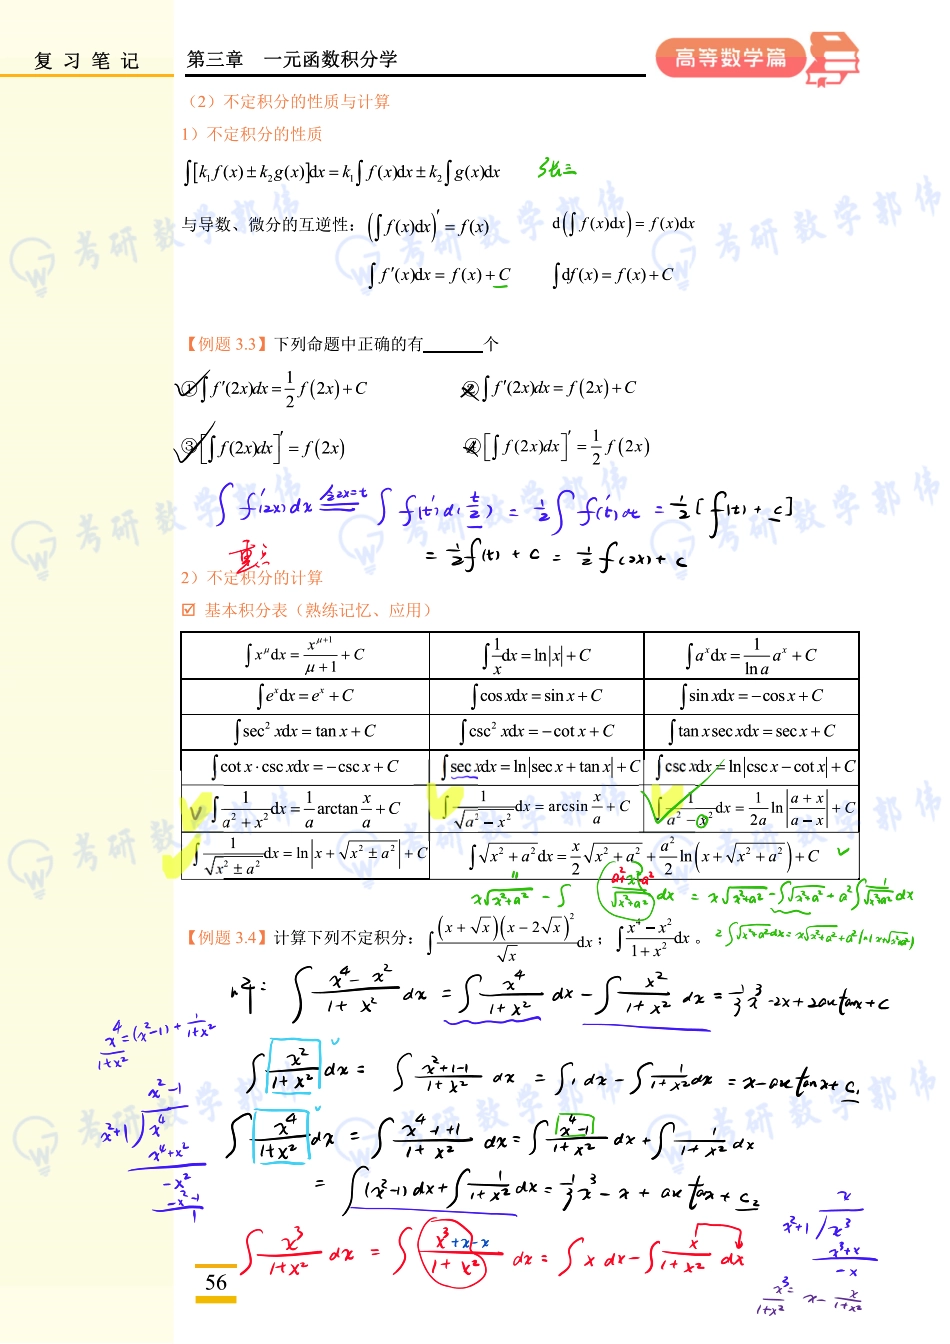 复 习 笔 记
第三章 一元函数积分学
高等数学篇
（2）不定积分的性质与计算
1）不定积分的性质
∫[k₁f(x)±k₂g(x)]dx = k₁∫f(x)dx ± k₂∫g(x)dx
与导数、微分的互逆性：(∫f(x)dx)′ = f(x) d(∫f(x)dx) = f(x)dx
∫f′(x)dx = f(x)+C ∫df(x) = f(x)+C
【例题 3.3】下列命题中正确的有______个
①∫f′(2x)dx = 1/2 f(2x)+C ②∫f′(2x)dx = f(2x)+C
③[∫f(2x)dx]′ = f(2x) ④[∫f(2x)dx]′ = 1/2 f(2x)
∫f′(2x)dx 令2x=t ∫f′(t)d(t/2) = 1/2∫f′(t)dt = 1/2[f(t)+C]
重点
= 1/2 f(t) + C = 1/2 f(2x) + C
2）不定积分的计算
☑ 基本积分表（熟练记忆、应用）
∫x^μ dx = x^(μ+1)/(μ+1) + C ∫1/x dx = ln|x| + C ∫a^x dx = 1/ln a a^x + C
∫e^x dx = e^x + C ∫cos xdx = sin x + C ∫sin xdx = −cos x + C
∫sec² xdx = tan x + C ∫csc² xdx = −cot x + C ∫tan x sec xdx = sec x + C
∫cot x·csc xdx = −csc x + C ∫sec xdx = ln|sec x + tan x| + C ∫csc xdx = ln|csc x − cot x| + C
∫1/(a²+x²) dx = 1/a arctan x/a + C ∫1/√(a²−x²) dx = arcsin x/a + C ∫1/(a²−x²) dx = 1/2a ln|(a+x)/(a−x)| + C
∫1/√(x²±a²) dx = ln|x+√(x²±a²)| + C ∫√(x²+a²)dx = x/2 √(x²+a²) + a²/2 ln(x+√(x²+a²)) + C
x√(x²+a²) − ∫(a²+x²−a²)/√(x²+a²) dx = x√(x²+a²) − ∫√(x²+a²) + a²∫1/√(x²+a²) dx
【例题 3.4】计算下列不定积分：∫(x+√x)(x−2√x)²/√x dx；∫(x⁴−x²)/(1+x²) dx。
2∫√(x²+a²)dx = x√(x²+a²) + a²ln|x+√(x²+a²)|
解: ∫(x⁴−x²)/(1+x²) dx = ∫x⁴/(1+x²) dx − ∫x²/(1+x²) dx = 1/3 x³ −2x + 2arctanx + C
x⁴/(1+x²) = (x²−1) + 1/(1+x²)
∫x²/(1+x²) dx = ∫(x²+1−1)/(1+x²) dx = ∫1 dx − ∫1/(1+x²) dx = x − arctanx + C₁
x²−1
x²+1 / x⁴
x⁴+x²
−x²
−x²−1
1
∫x⁴/(1+x²) dx = ∫(x⁴−1+1)/(1+x²) dx = ∫(x⁴−1)/(1+x²) dx + ∫1/(1+x²) dx
= ∫(x²−1)dx + ∫1/(1+x²) dx = 1/3 x³ − x + arctanx + C₂
∫x³/(1+x²) dx = ∫(x³+x−x)/(1+x²) dx = ∫x dx − ∫x/(1+x²) dx
x
x²+1 / x³
x³+x
−x
x³/(1+x²) = x − x/(1+x²)
56